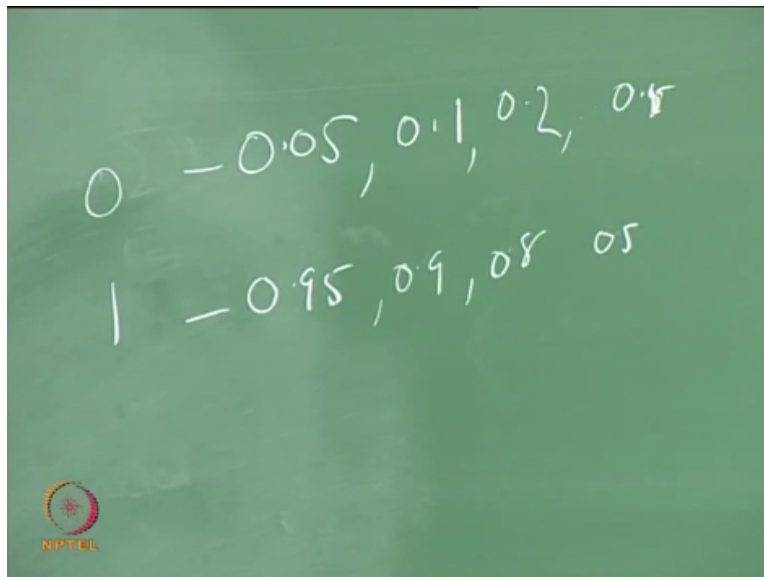 0 - 0.05, 0.1, 0.2,
1 - 0.95, 0.9, 0.8 0.5
NPTEL